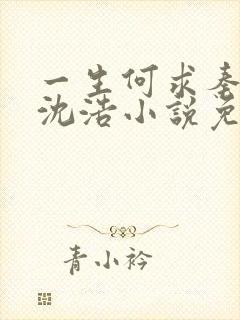 一生何求秦
沈浩小説免
青小衿